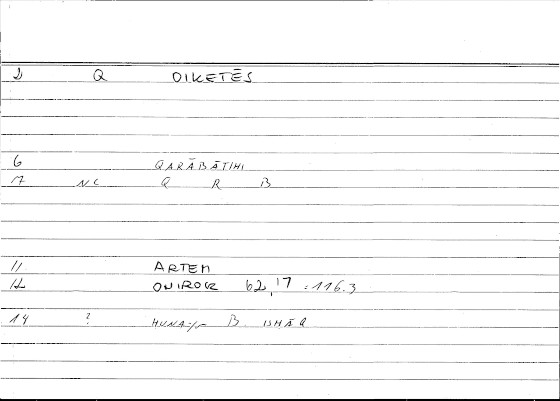 2 Q OIKETĒS
6 QARĀBĀTIHI
7 NC Q R B
11 ARTEM
12 ONIROCR 62,17 = 116.3
14 ? HUNAYN B ISHĀQ